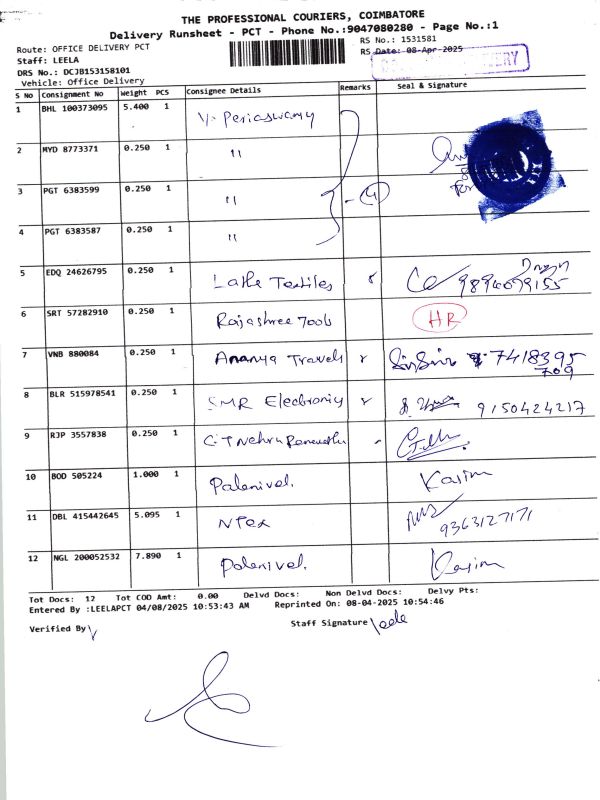 THE PROFESSIONAL COURIERS, COIMBATORE
Delivery Runsheet - PCT - Phone No.:9047080280 - Page No.:1
Route: OFFICE DELIVERY PCT
RS No.: 1531581
Staff: LEELA
RS Date: 08-Apr-2025
DRS No.: DCJB153158101
DELIVERY
Vehicle: Office Delivery
S No Consignment No Weight PCS Consignee Details Remarks Seal & Signature
1 BHL 100373095 5.400 1 V. Periaswamy
2 MYD 8773371 0.250 1 "
3 PGT 6383599 0.250 1 " - 4
4 PGT 6383587 0.250 1 "
5 EDQ 24626795 0.250 1 Textiles 9894099155
6 SRT 57282910 0.250 1 Rajashree Tools HR
7 VNB 880084 0.250 1 Ananya Travels 7418395
709
8 BLR 515978541 0.250 1 SMR Electronics 9150424217
9 RJP 3557838 0.250 1 C.T Nehru
10 BOD 505224 1.000 1 Palanivel. Kasim
11 DBL 415442645 5.095 1 NTex 9363127171
12 NGL 200052532 7.890 1 Palanivel. Kasim
Tot Docs: 12 Tot COD Amt: 0.00 Delvd Docs: Non Delvd Docs: Delvy Pts:
Entered By :LEELAPCT 04/08/2025 10:53:43 AM Reprinted On: 08-04-2025 10:54:46
Verified By Staff Signature leela